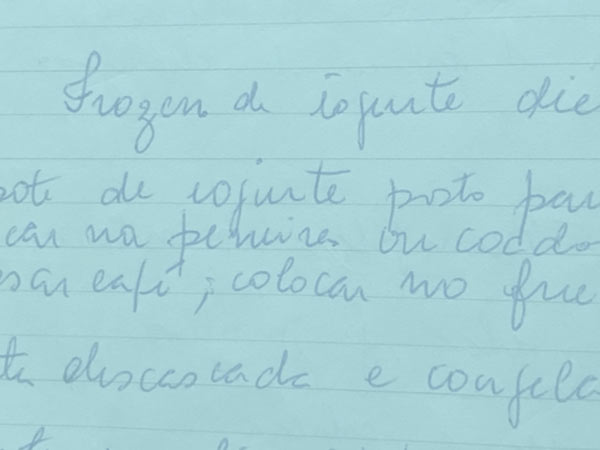 Frozen de iogurte die
ote de iogurte posto par
car na peneira ou coado
sar café, colocar no free
ta descascada e congela